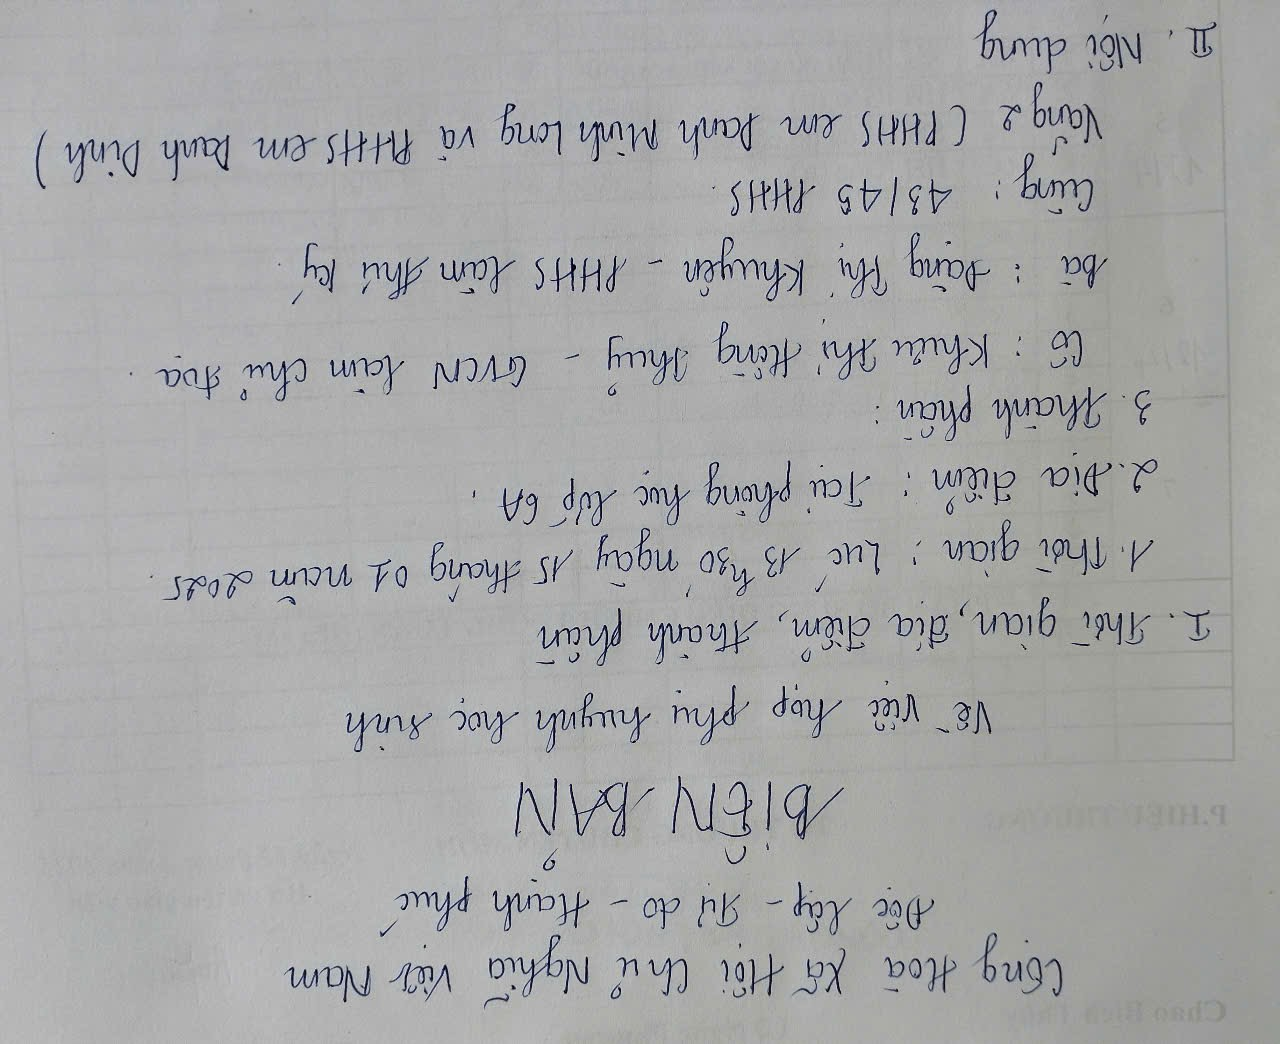 Cộng Hoà Xã Hội Chủ Nghĩa Việt Nam
Độc lập - Tự do - Hạnh phúc
BIÊN BẢN
Về việc họp phụ huynh học sinh
I. Thời gian, địa điểm, thành phần
1. Thời gian: Lúc 13h30 ngày 15 tháng 01 năm 2025.
2. Địa điểm: Tại phòng học lớp 6A.
3. Thành phần:
Cô: Khiếu Thị Hồng Thuỷ - GVCN làm chủ toạ.
Bà: Đặng Thị Khuyên - PHHS làm thư ký.
Cùng: 43/45 PHHS.
Vắng 2 (PHHS em Danh Minh Long và PHHS em Danh Dinh)
II. Nội dung
P.HIỆU TRƯỞNG